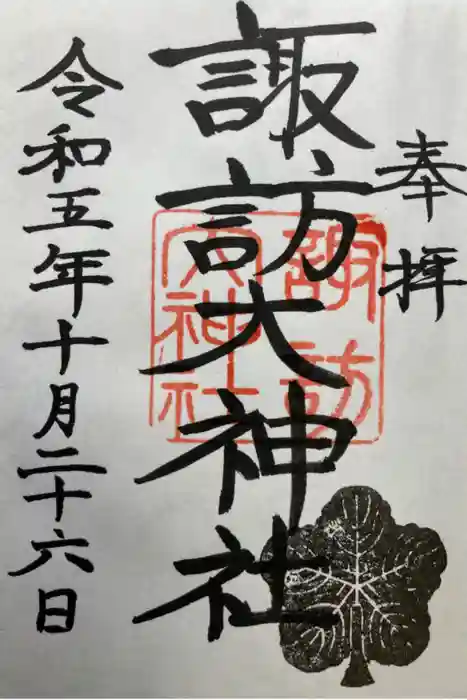 奉拝
諏訪大神社
諏訪
大神社
令和五年十月二十六日